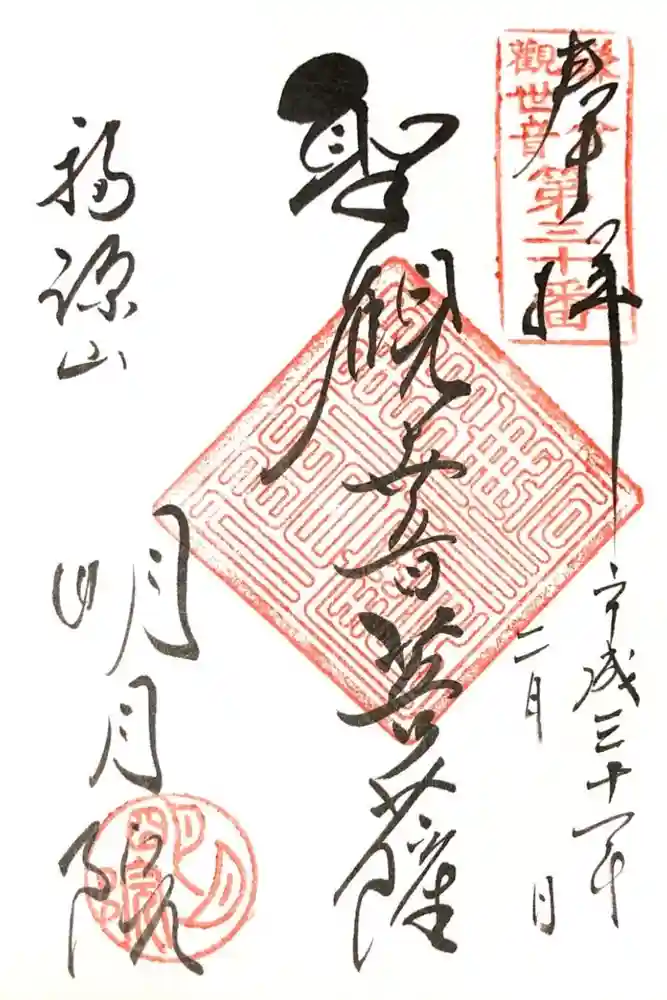 鎌倉
觀世音
第三十番
奉拝
平成三十一年
二月 日
聖観世音菩薩
福源山
明月院